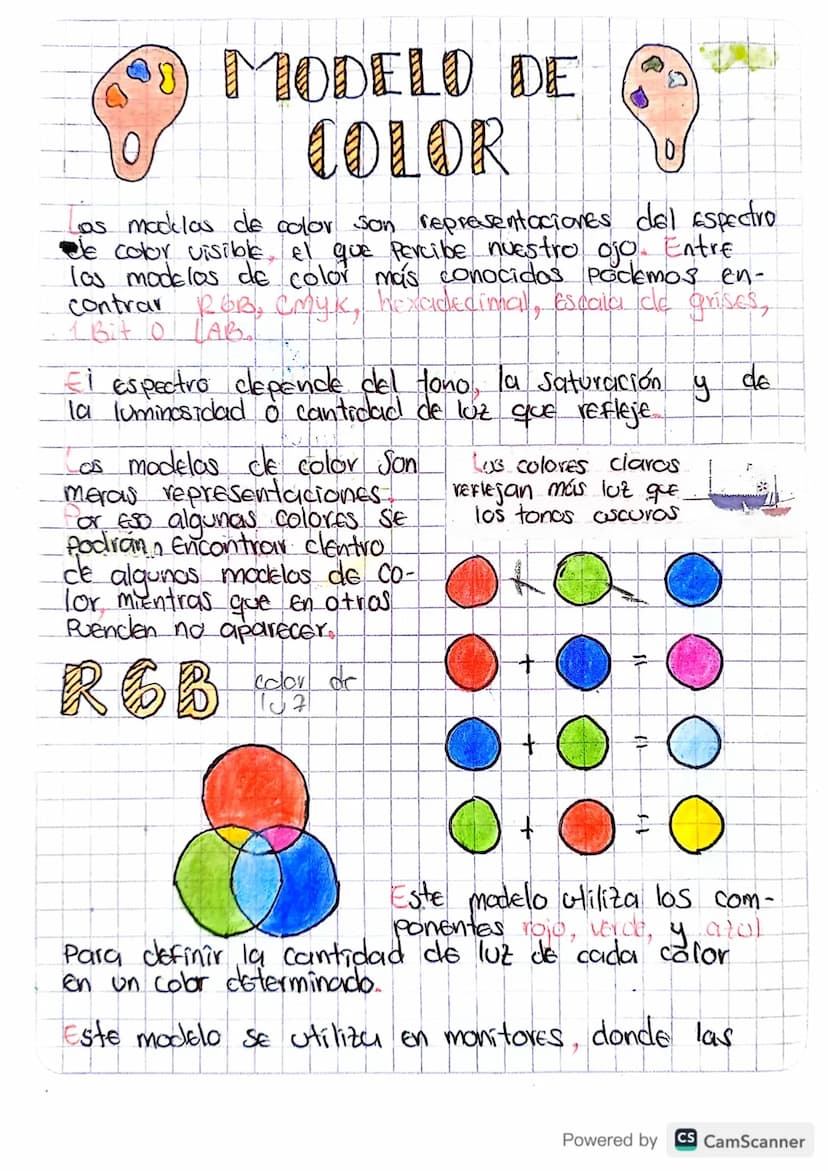 MODELO DE
COLOR
Los modelos de color son representaciones del espectro
de color visible, el que percibe nuestro ojo. Entre
los modelos de color más conocidos podemos en-
contrar RGB, CMYK, hexadecimal, escala de grises,
1 Bit o LAB.
El espectro depende del tono, la saturación y de
la luminosidad o cantidad de luz que refleje.
Los modelos de color son
meras representaciones.
Por eso algunos colores se
podrán encontrar dentro
de algunos modelos de co-
lor, mientras que en otros
Pueden no aparecer.
Los colores claros
reflejan más luz que
los tonos oscuros
+
+ =
+ =
+ =
RGB color de
luz
Este modelo utiliza los com-
ponentes rojo, verde, y azul
Para definir la cantidad de luz de cada color
en un color determinado.
Este modelo se utiliza en monitores, donde las
Powered by CS CamScanner